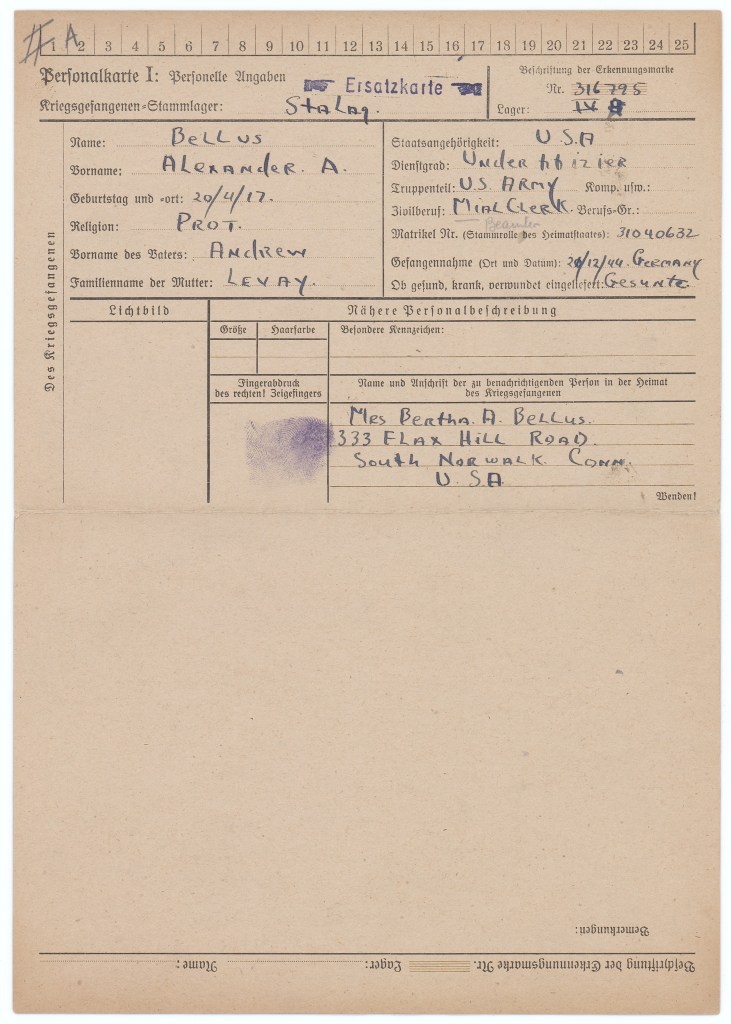 # A
1 2 3 4 5 6 7 8 9 10 11 12 13 14 15 16 17 18 19 20 21 22 23 24 25
Personalkarte I: Personelle Angaben
Ersatzkarte
Beschriftung der Erkennungsmarke
Nr. 316795
Kriegsgefangenen-Stammlager: Stalag.
Lager: IV B
Des Kriegsgefangenen
Name: Bellus
Vorname: Alexander. A.
Geburtstag und -ort: 20/4/17.
Religion: Prot.
Vorname des Vaters: Andrew
Familienname der Mutter: Levay.
Staatsangehörigkeit: U.S.A
Dienstgrad: Underffizier
Truppenteil: U.S. Army Komp. usw.:
Zivilberuf: Mial Clerk. Berufs-Gr.:
Beamter
Matrikel Nr. (Stammrolle des Heimatstaates): 31040632
Gefangennahme (Ort und Datum): /12/44. Germany
Ob gesund, krank, verwundet eingeliefert: Gesunte
Lichtbild
Nähere Personalbeschreibung
Größe Haarfarbe Besondere Kennzeichen:
Fingerabdruck
des rechten! Zeigefingers
Name und Anschrift der zu benachrichtigenden Person in der Heimat
des Kriegsgefangenen
Mrs Bertha. A. Bellus.
333 Flax Hill Road.
South Norwalk Conn.
U.S.A
Wenden!
Bemerkungen:
Beschriftung der Erkennungsmarke Nr. Lager: Name: